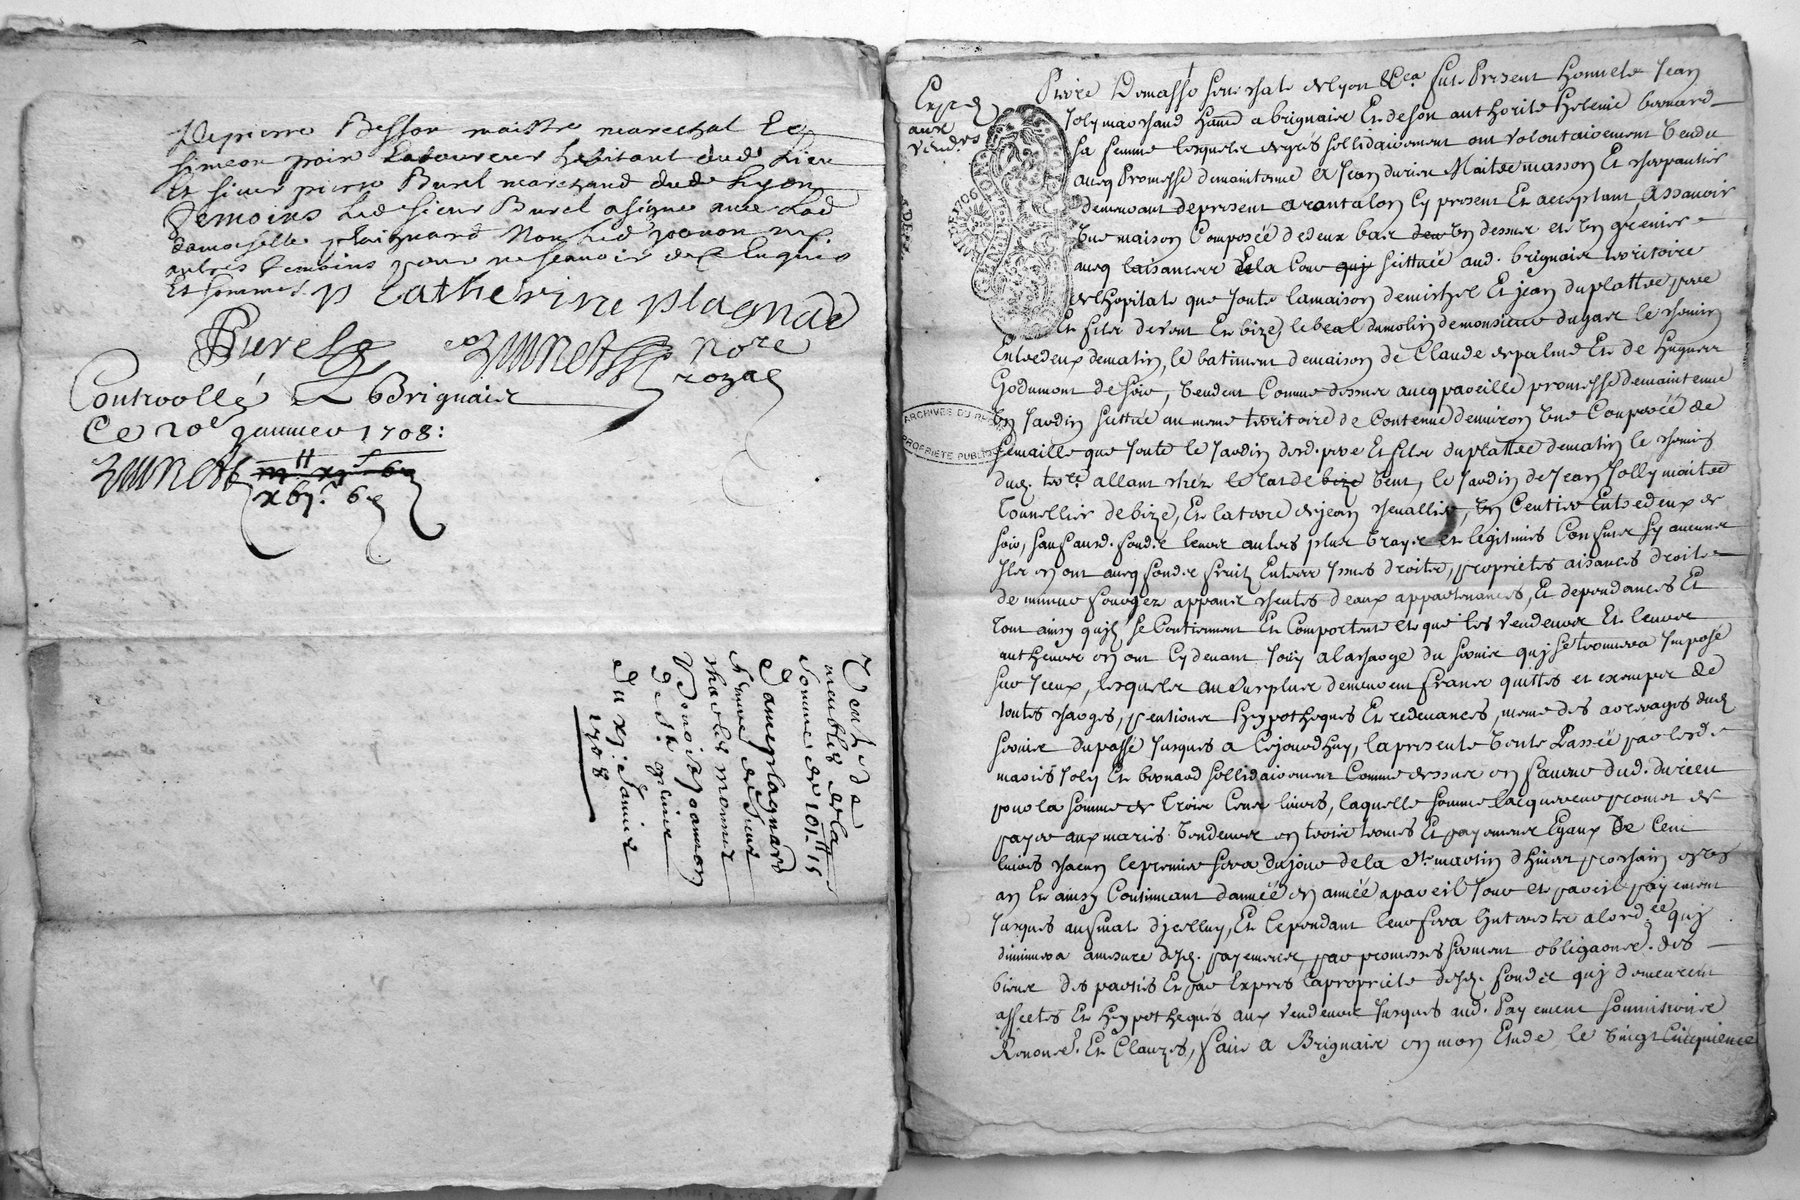 De pierre Besson maistre marechal Et
simeon poin Laboureur habitant dud Lieu
Et sieur pierre Burel marchand dude Lyon
Temoins Led sieur Burel a signé avec Lad
damoiselle plaignard Non Led joanon ny
autres temoins pour ne scavoir de ce Enquis
Et sommes
Catherine plagnard
Burel
Brunet nore
royal
Controllé a Brignais
Ce 20e Janvier 1708:
Brunet
xbjs 6d
Vente de
meubles de la
somme de 101 tt 15
Dame plagnard
femme de sieur
Charles monnet
a Benoist joannon
de St genis
du xj. Janvier
1708
Exped
aux
vend.rs
ARCHIVES DU RHÔNE
PROPRIÉTÉ PUBLIQUE
Pierre Domassé senechal de lyon &ca fut Present Honnete Jean
Joly marchand Hante a brignais Et de son authorité Helenie bernard
sa femme lesquels de gres sollidairement ont volontairement Vendu
avec Promesse de maintenir a Jean durieu Maitre masson Et charpantier
demeurant de present a rantalon Cy present Et acceptant, Assavoir
Une maison Composée de deux bas Un dessus et Un grenier
avec laisances de la Cour scittuée aud. brignais territoire
de lhopital que Joute la maison de michel Et jean duplattre pere
Et fils de vent Et bize, le beal du molin de monsieur dugas le chemin
Entredeux de matin, le batiment de maison de Claude despalme Et de hugues
Godumont de soir, Vendent Comme dessus avec pareille promesse de maintenir
Un Jardin scittué au meme territoire de Contenue denviron Une Couposée de
semaille que Joute le Jardin desd. pere Et fils duplattre de matin le chemin
dud. terre allant chez le rat de bize Vent, le Jardin de Jean Jolly maitre
Tounellier de bize, Et la terre de jean chevallier, Un Centier Entredeux de
soir, sauf ausd. fonds leurs autres plus Vrayes et legitimes Confins sy aucuns
Ils en ont avec fonds fruits Entrees Issues droits, proprietes aisances droits
de appartenances, Et dependances Et
Tout ainsy quil se Contiennent Et Comportent et que les Vendeurs Et leurs
autheurs en ont Cy devant Jouy a la charge du servis quy se trouvera Imposé
sur Iceux, lesquels au surplus demeurent francs quittes et exempts de
toutes charges, pentions hypotheques Et redevances, meme des arrerages dud
servis du passé Jusques a Cejourdhuy, la presente Vente Passée par lesd.
maries Joly Et bernard sollidairement Comme dessus en faveur dud. durieu
pour la somme de Trois Cens livres, laquelle somme lacquereur promet de
payer aux maries Vendeurs en trois termes Et payemens Egaux De Cent
livres chacun le premier sera du jour de la St martin dhiver prochain en Un
an Et ainsy Continuant dannée en année a pareil Jour et pareil payement
Jusques au final dicelluy, Et Cependant leur fera Linterestz alordce quy
diminuera a mesure desd. payemens, par promesses serment obligaons. des
biens des parties Et par Expres la proprieté desd. fonds quy demeurent
affectes Et hypotheques aux Vendeurs Jusques aud. Payement soumissions
Renons. Et Clauzes, faite a Brignais en mon Etude le Vingt Cinquieme